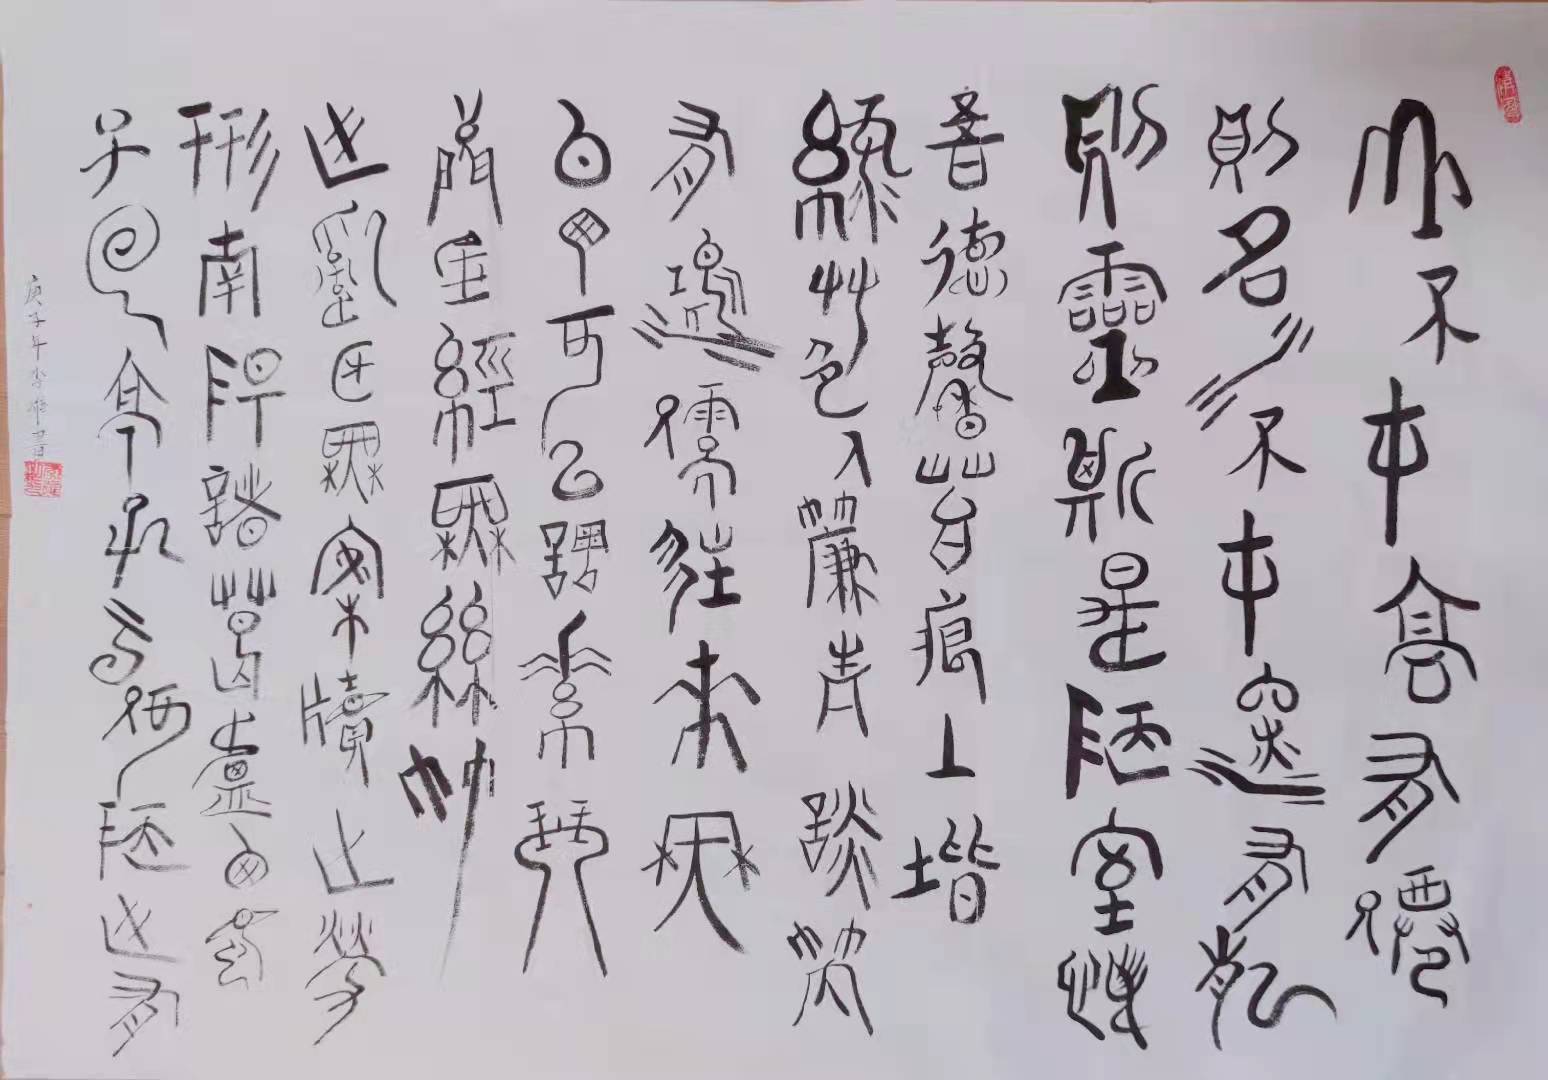 山不在高有僊
則名水不在深有龍
則靈斯是陋室惟
吾德馨苔痕上階
綠艸色入簾青談笑
有鴻儒往來無
白丁可以調素琴
閱金經無絲竹
之亂耳無案牘之勞
形南陽諸葛廬西蜀
子雲亭孔子云何陋之有
庚子年李書